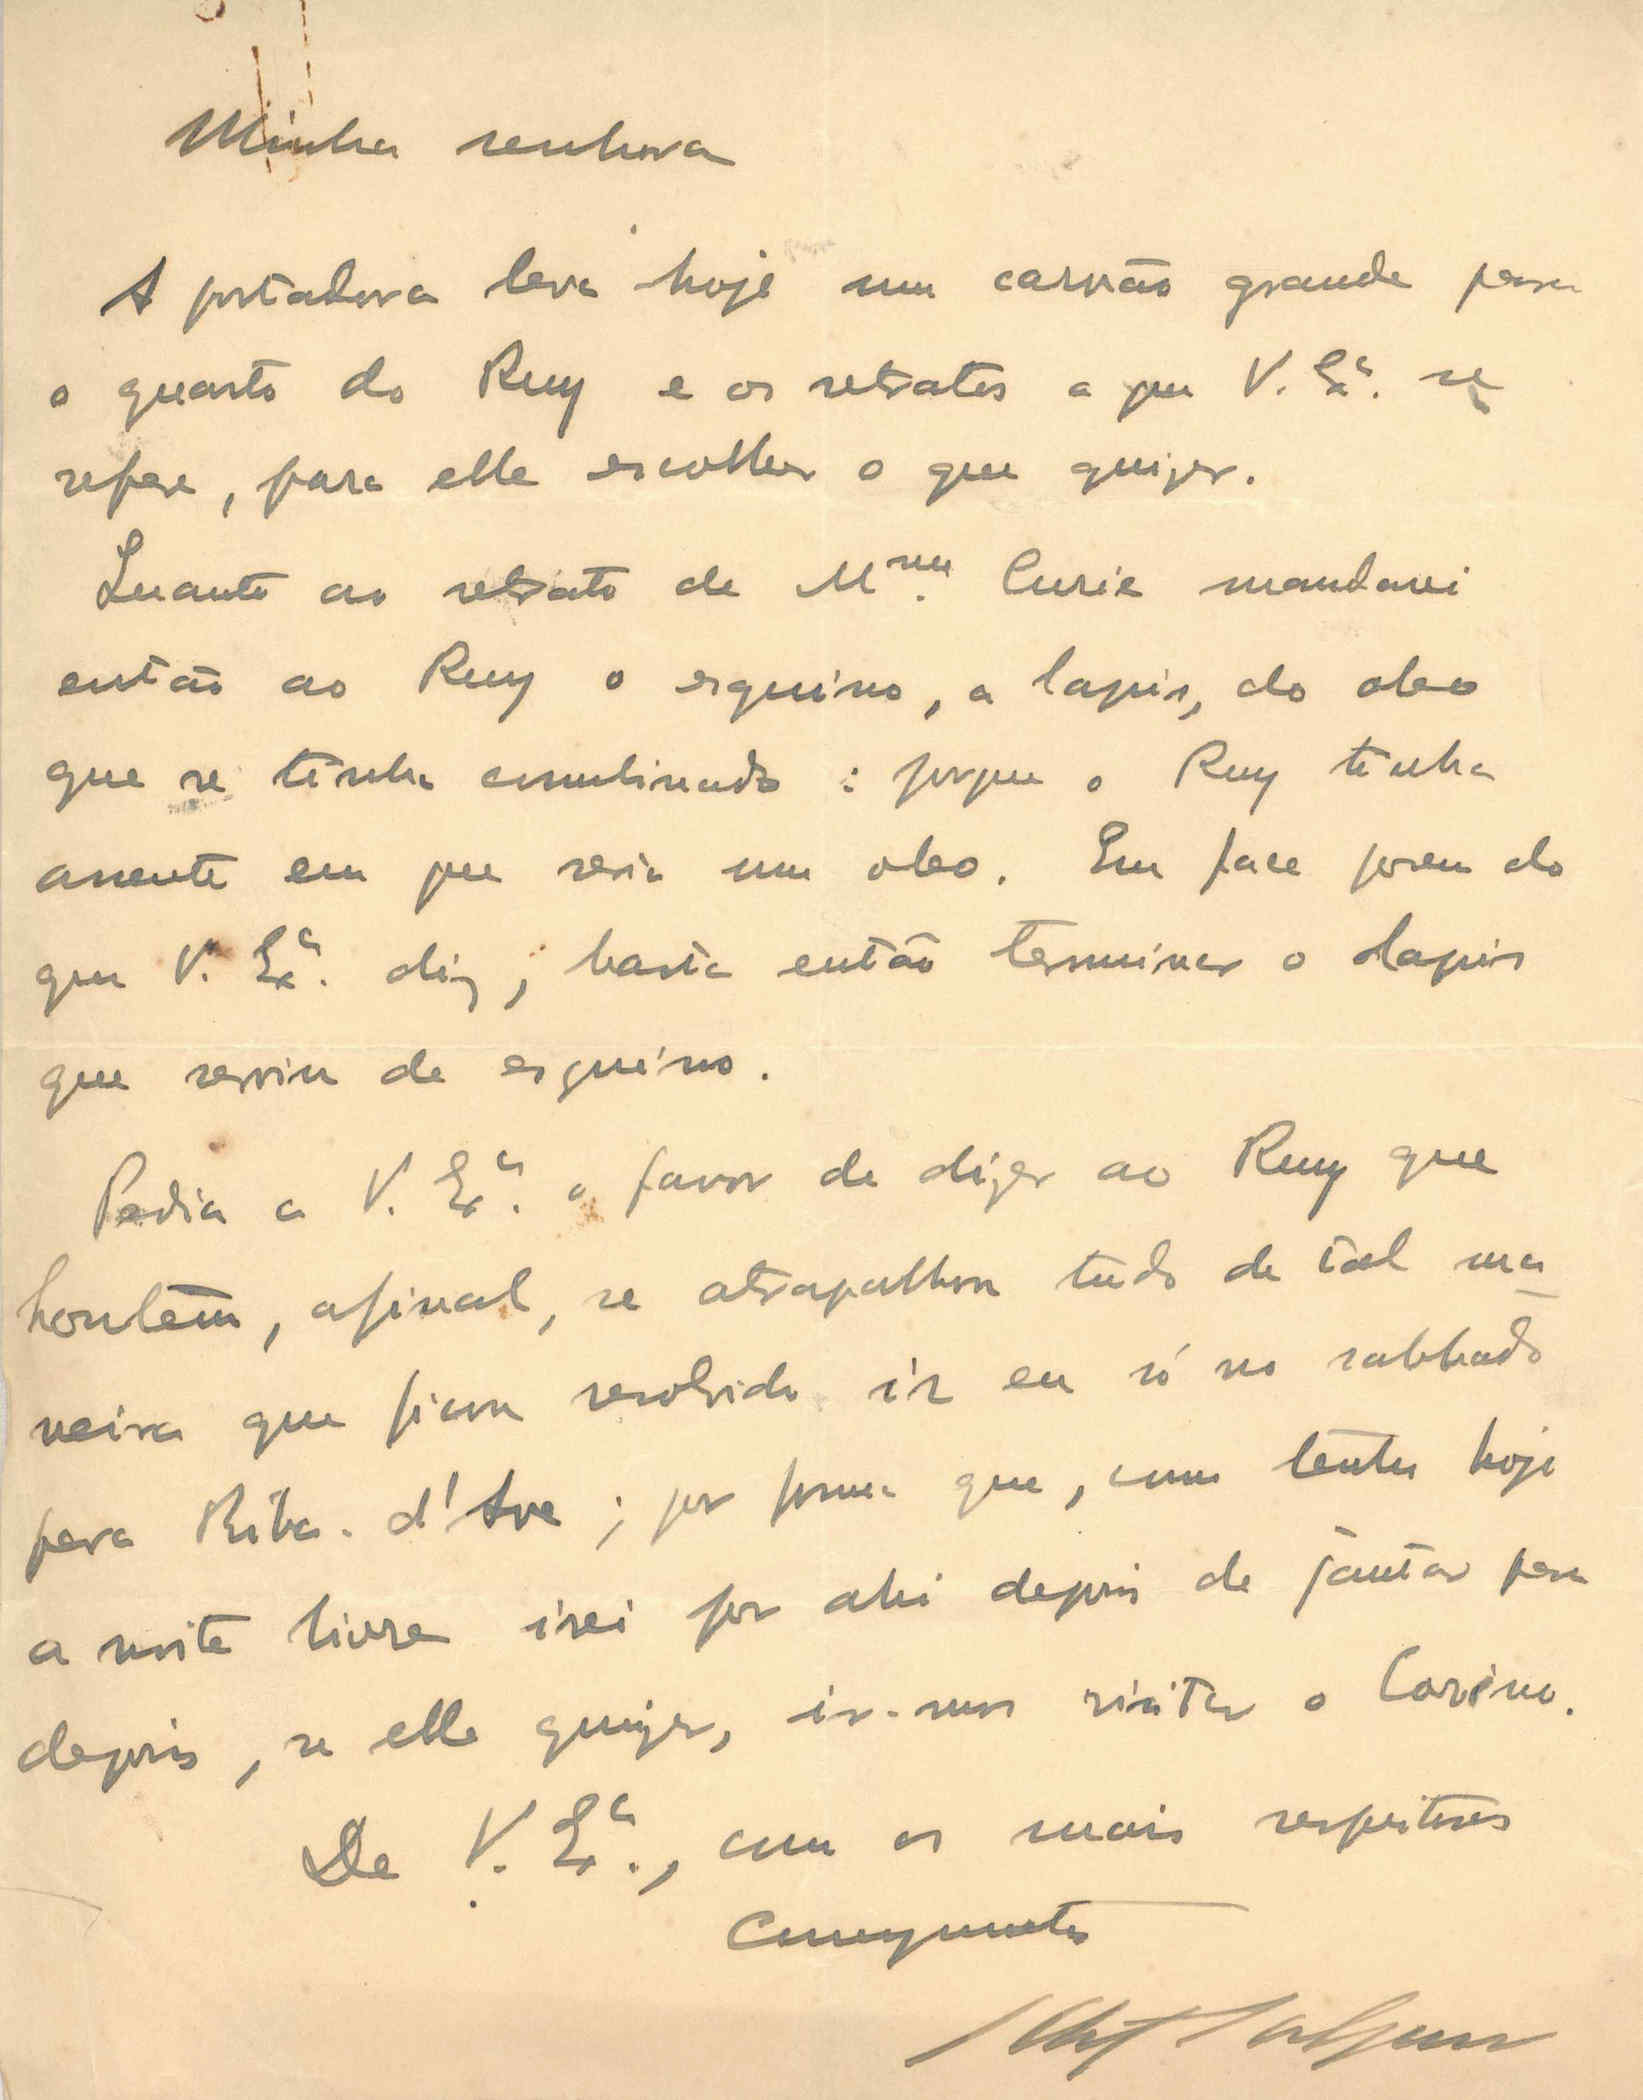 Minha senhora
A portadora leva hoje um carvão grande para
o quarto do Ruy e os retratos a que V. Exª. se
refere, para elle escolher o que quizer.
Quanto ao retrato de Mme. Curie mandarei
então ao Ruy o esquiso, a lapis, do oleo
que se tinha combinado: porque o Ruy tinha
assente em que seria um oleo. Em face porem do
que V. Exª. diz, basta então terminar o lapis
que servia de esquiso.
Pedia a V. Exª. o favor de dizer ao Ruy que
hontem, afinal, se atrapalhou tudo de tal ma
neira que ficou resolvido ir eu só no sabbado
para Riba-d'Ave; por forma que, como tenho hoje
a noite livre irei por ahi depois de jantar para
depois, se elle quizer, ir-mos visitar o
De V. Exª., com os mais respeitosos
Cumprimentos